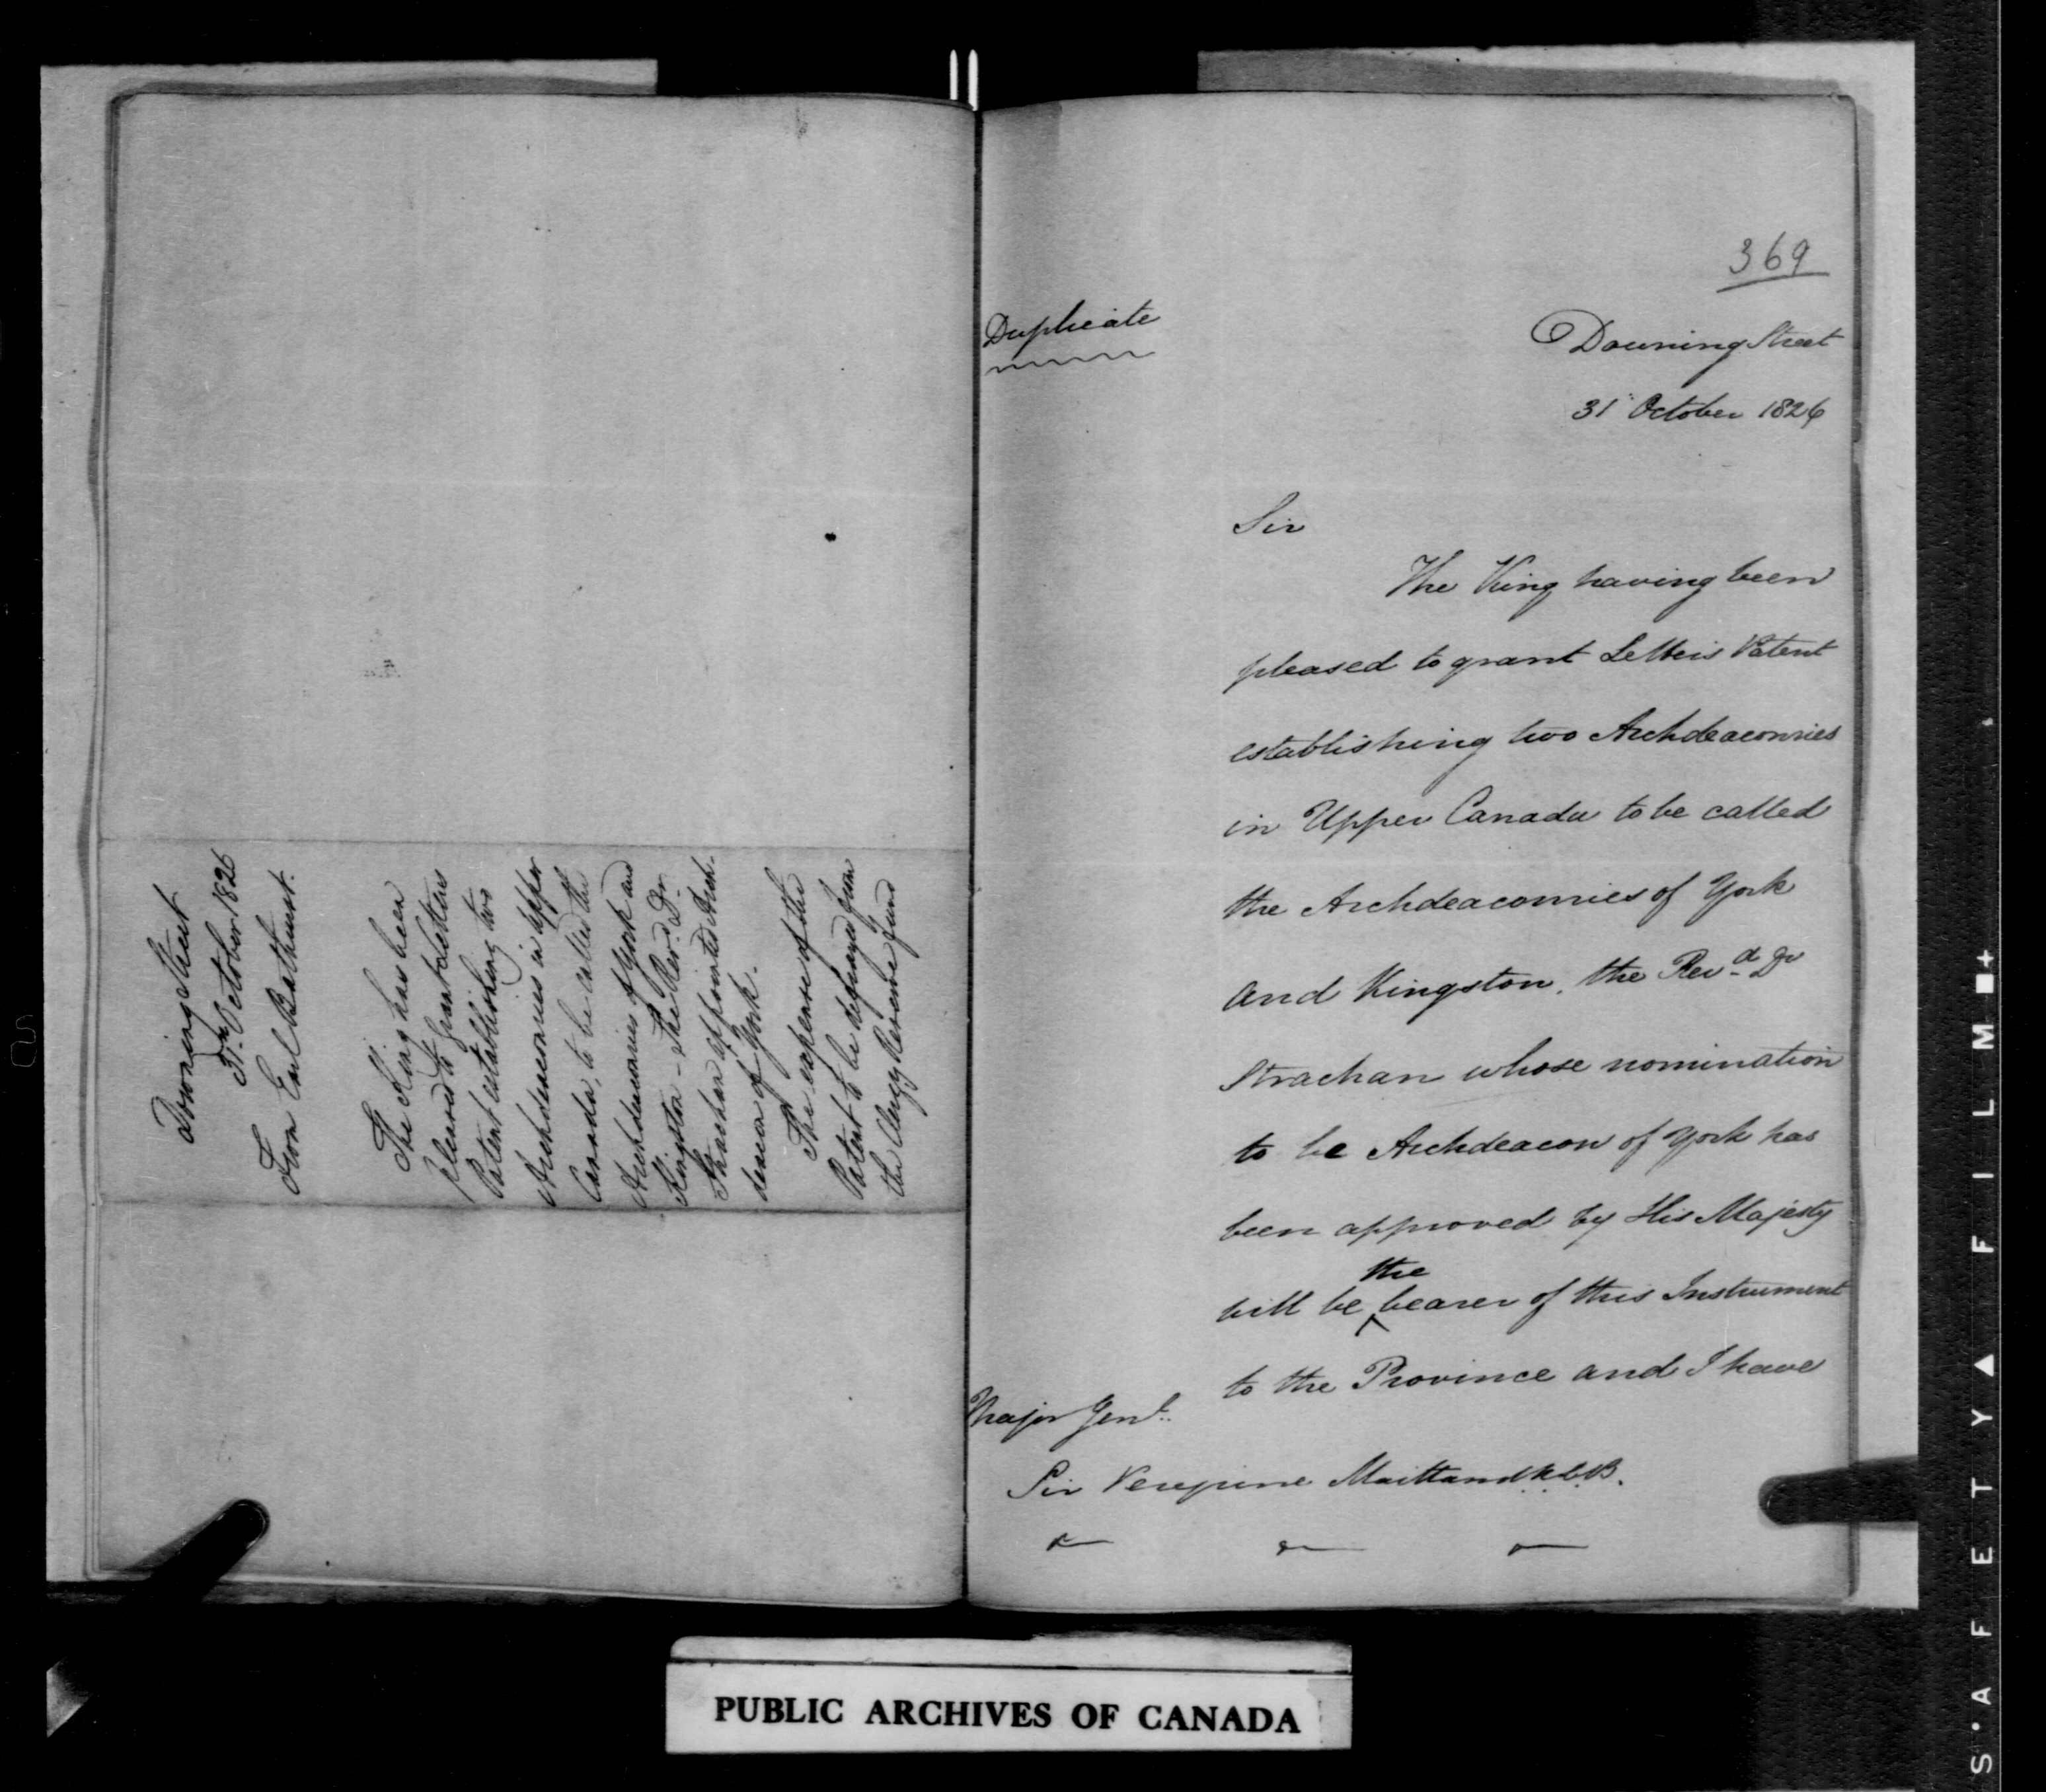 Downing Street
31st October 1826
From Earl Bathurst.
The King has been
pleased to grant Letters
Patent establishing two
Archdeaconries in Upper
Canada, to be called the
Archdeaconries of York and
Kingston - The Revd. Dr.
Strachan appointed Arch-
deacon of York.
The expense of the
Patent to be defrayed from
the Clergy Reserve fund
369
Duplicate
Downing Street
31 October 1826
Sir
The King having been
pleased to grant Letters Patent
establishing two Archdeaconries
in Upper Canada to be called
the Archdeaconries of York
and Kingston, the Revd Dr
Strachan whose nomination
to be Archdeacon of York has
been approved by His Majesty
will be the bearer of this Instrument
to the Province and I have
Major Genl.
Sir Peregrine Maitland K.C.B.
PUBLIC ARCHIVES OF CANADA
S·AFETY▲FILM■+